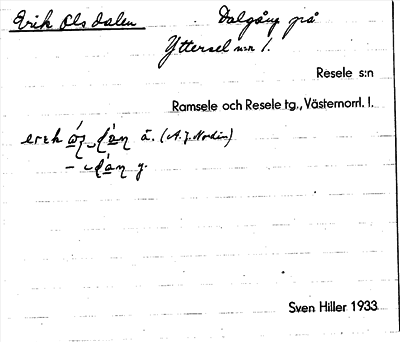 Erik Ols dalen
Dalgång på
Yttersel n:r 1.
Resele s:n
Ramsele och Resele tg., Västernorrl. l.
ä. (A. J. Nordin)
y.
Sven Hiller 1933